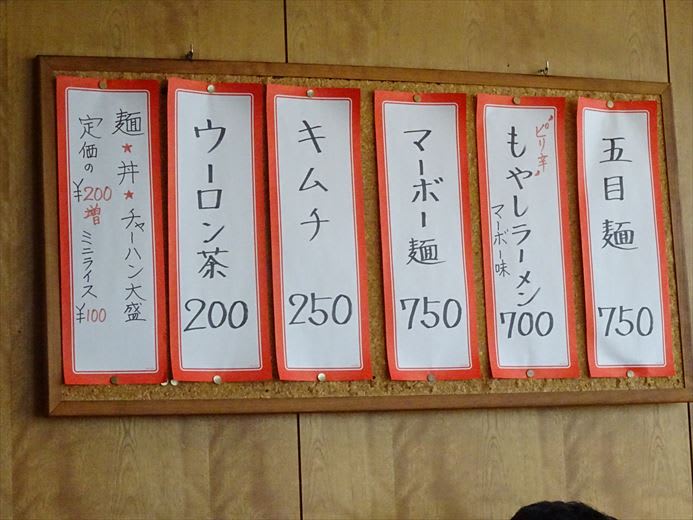 五目麺
750
"ピリ辛"
もやしラーメン
マーボー味
700
マーボー麺
750
キムチ
250
ウーロン茶
200
麺★丼★チャーハン大盛
定価の¥200増 ミニライス¥100